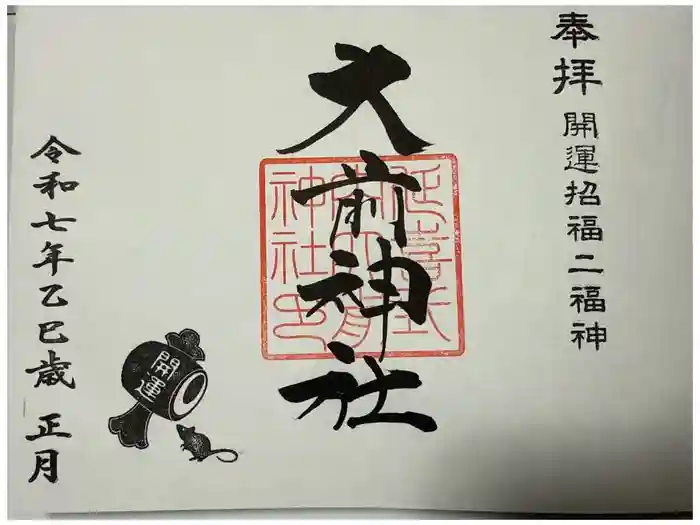 奉拝
開運招福二福神
大前神社
延喜式
内大前
神社印
開運
令和七年乙巳歳 正月